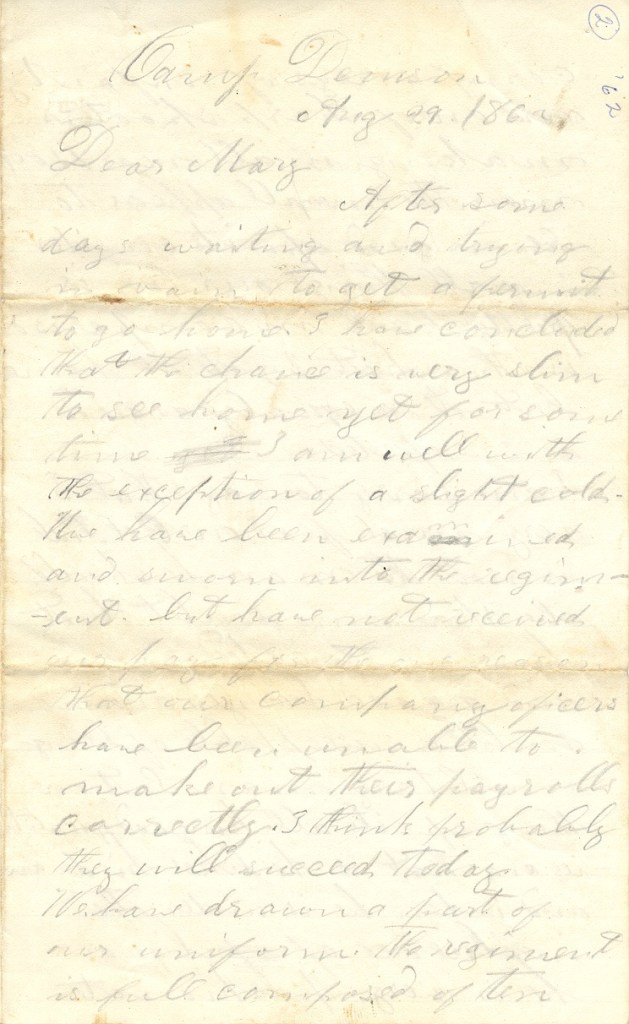 2
'62
Camp Dennison
Aug 29. 1862
Dear Mary
After some
days writing and trying
in vain to get a permit
to go home I have concluded
that the chance is very slim
to see home yet for some
time I am well with
the exception of a slight cold-
We have been examined
and sworn into the regim-
-ent. but have not received
our pay for the one reason
that our company oficers
have been unable to
make out their payrolls
correctly. I think probably
they will succeed today.
We have drawn a part of
our uniform. the regiment
is full composed of ten